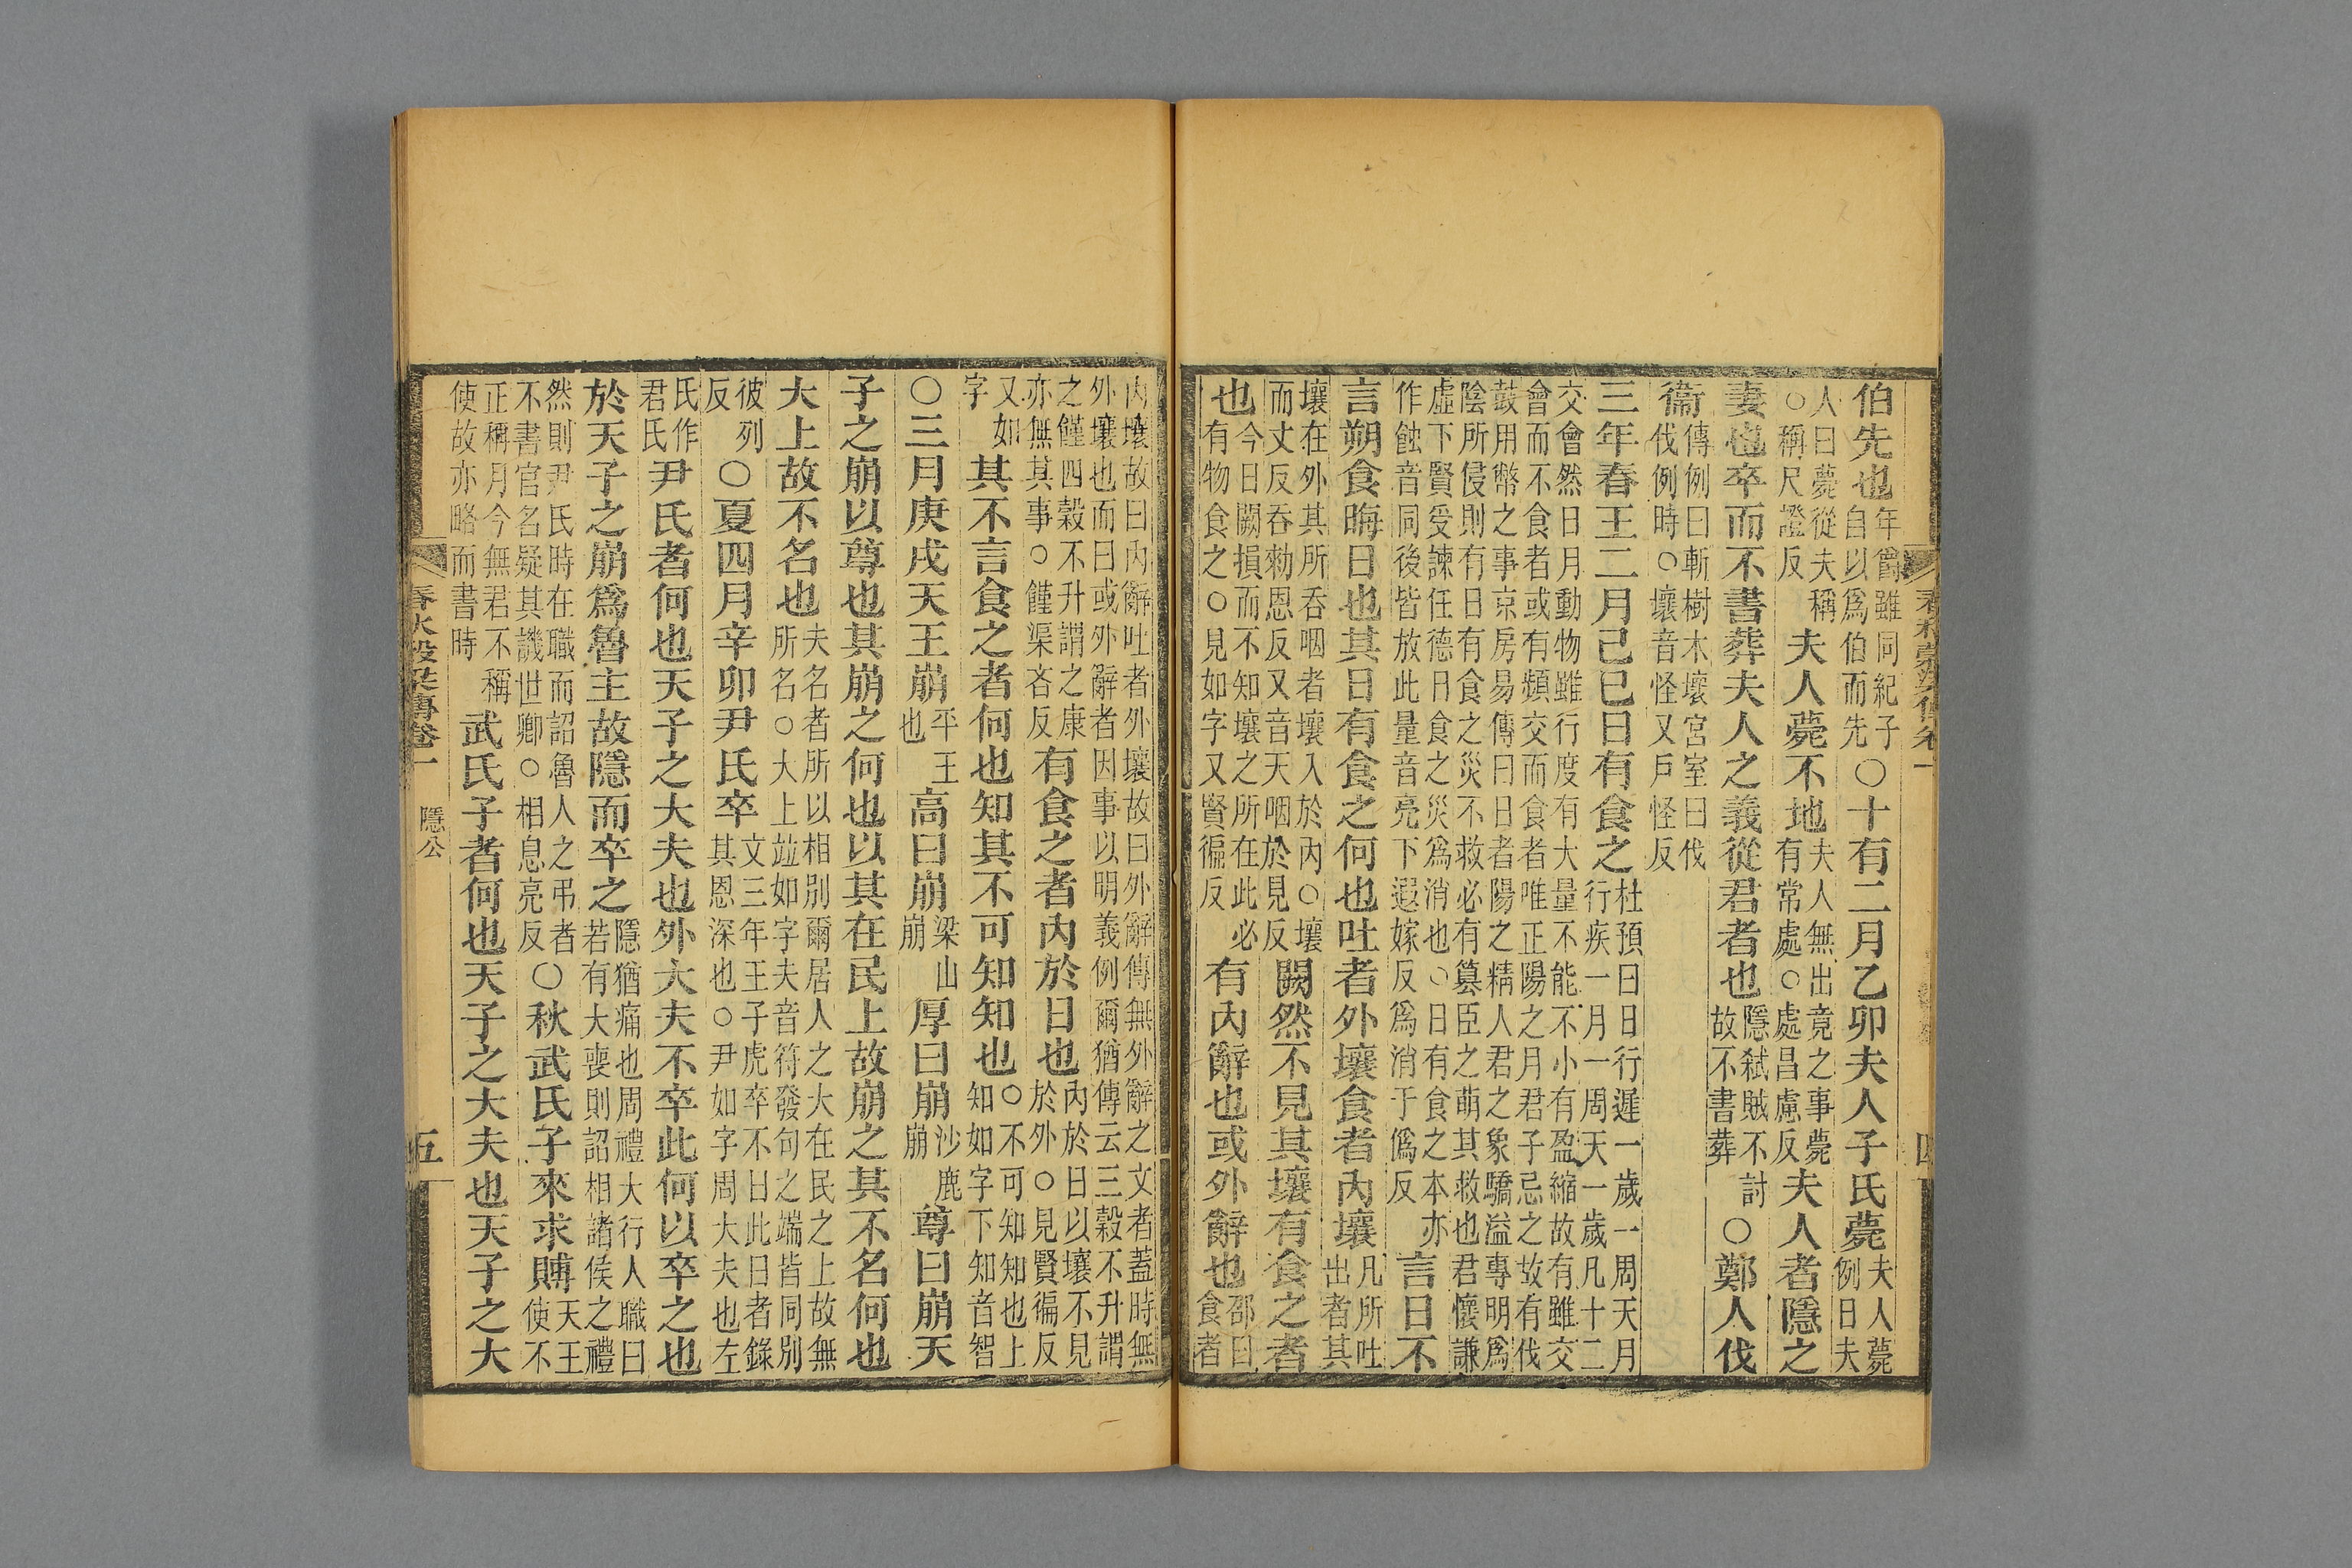 伯先也年爵雖同紀子自以爲伯而先○十有二月乙卯夫人子氏薨夫人薨例日夫
人曰薨從夫稱○稱尺證反夫人薨不地夫人無出竟之事薨有常處○處昌慮反夫人者隱之
妻也卒而不書葬夫人之義從君者也隱弑賊不討故不書葬○鄭人伐
衞傳例曰斬樹木壞宮室曰伐伐例時○壞音怪又戶怪反
三年春王二月己巳日有食之杜預曰日行遲一歲一周天月行疾一月一周天一歲凡十二
交會然日月動物雖行度有大量不能不小有盈縮故有雖交會而不食者或有頻交而食者唯正陽之月君子忌之故有伐
鼓用幣之事京房易傳曰日者陽之精人君之象驕溢專明爲陰所侵則有日有食之災不救必有篡臣之萌其救也君懷謙
虛下賢受諫任德日食之災爲消也○日有食之本亦作蝕音同後皆放此量音亮下遐嫁反爲消于僞反言日不
言朔食晦日也其日有食之何也吐者外壤食者內壤凡所吐出者其
壤在外其所吞咽者壤入於內○壤而丈反吞勑恩反又音天咽於見反闕然不見其壤有食之者
也今日闕損而不知壤之所在此必有物食之○見如字又賢徧反有內辭也或外辭也邵曰食者
內壤故曰內辭吐者外壤故曰外辭傳無外辭之文者蓋時無外壤也而曰或外辭者因事以明義例爾猶傳云三穀不升謂
之饉四穀不升謂之康亦無其事○饉渠吝反有食之者內於日也內於日以壤不見於外○見賢徧反
又如字其不言食之者何也知其不可知知也○不可知知也上知如字下知音智
○三月庚戌天王崩平王也高曰崩梁山崩厚曰崩沙鹿崩尊曰崩天
子之崩以尊也其崩之何也以其在民上故崩之其不名何也
大上故不名也夫名者所以相別爾居人之大在民之上故無所名○大上竝如字夫音符發句之端皆同別
彼列反○夏四月辛卯尹氏卒文三年王子虎卒不日此日者錄其恩深也○尹如字周大夫也左
氏作君氏尹氏者何也天子之大夫也外大夫不卒此何以卒之也
於天子之崩爲魯主故隱而卒之隱猶痛也周禮大行人職曰若有大喪則詔相諸侯之禮
然則尹氏時在職而詔魯人之弔者不書官名疑其譏世卿○相息亮反○秋武氏子來求賻天王使不
正稱月今無君不稱使故亦略而書時武氏子者何也天子之大夫也天子之大
春秋穀梁傳卷一
隱公
五
四